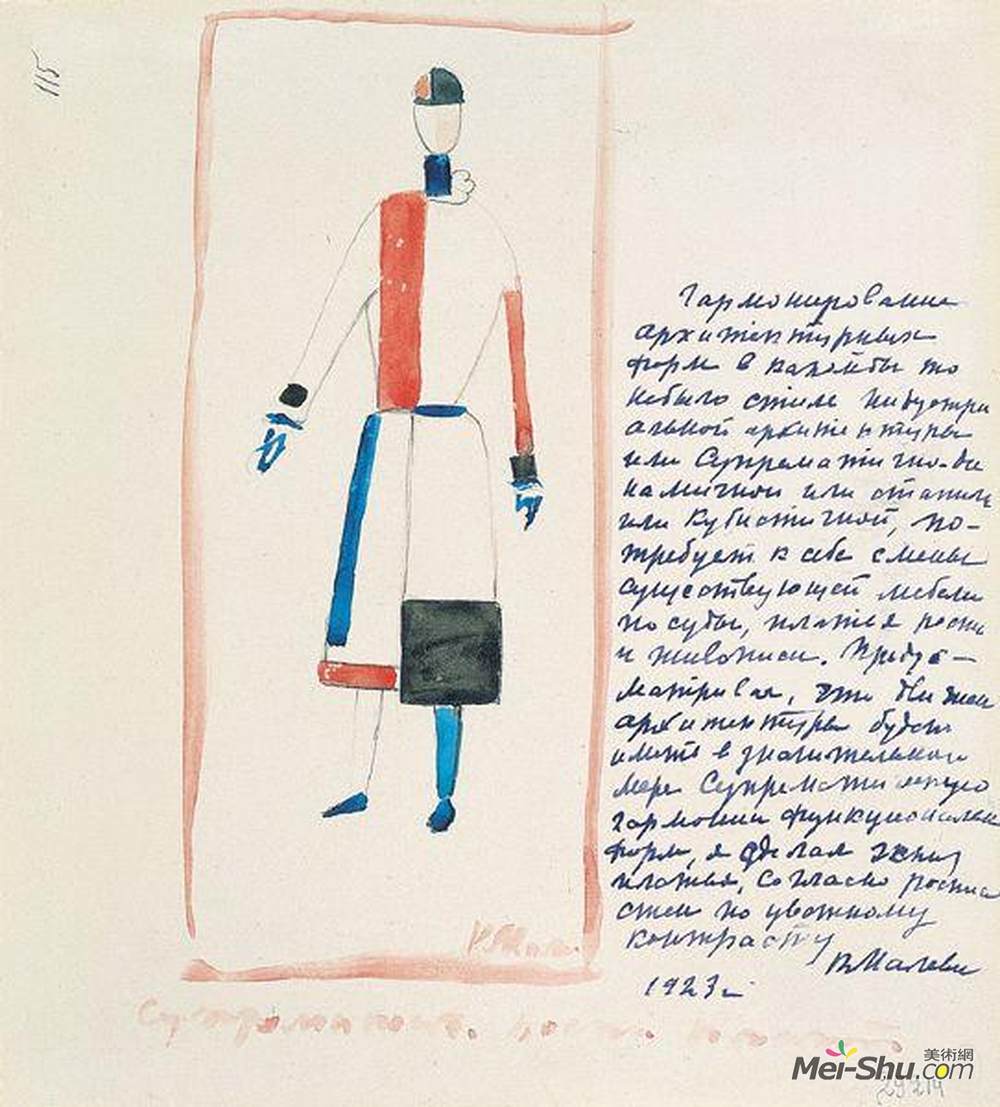 115
Гармонирование
архитектурных
форм в какомбы то
небыло стиле Индустри
альной архитектуры
или Супрематично-ди
намичной или статич
или Кубистичной, по-
требует к себе смены
существующей мебели
посуды, платья росп
и живописи. Предус-
матривая, что движен
архитектуры будет
иметь в значительной
мере Супрематическую
гармонию функциональн
форм, я сделал эскиз
платья, согласно роспис
стен по цветному
контрасту
К Малеви
1923 г
К Мал
Супрематич.
美術網
Mei-Shu.com